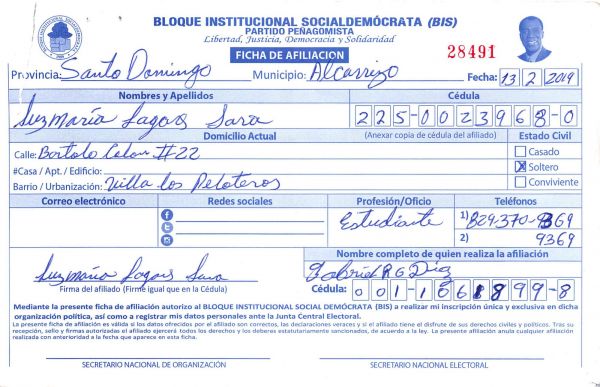 BLOQUE INSTITUCIONAL SOCIALDEMÓCRATA (BIS)
PARTIDO PEÑAGOMISTA
Libertad, Justicia, Democracia y Solidaridad
FICHA DE AFILIACION
28491
Provincia: Santo Domingo Municipio: Alcarrizo Fecha: 13 2 2019
Nombres y Apellidos Cédula
Luzmaría Lagos Sara 225-0023968-0
Domicilio Actual (Anexar copia de cédula del afiliado) Estado Civil
Calle: Bartolo Colon #22
Casado
#Casa / Apt. / Edificio:
X Soltero
Barrio / Urbanización: Villa los Peloteros
Conviviente
Correo electrónico Redes sociales Profesión/Oficio Teléfonos
Estudiante 1) 829-370-9369
2) 9369
Nombre completo de quien realiza la afiliación
Luzmaría Lagos Sara Gabriel R G Díaz
Firma del afiliado (Firme igual que en la Cédula) Cédula: 001-1661899-8
Mediante la presente ficha de afiliación autorizo al BLOQUE INSTITUCIONAL SOCIAL DEMÓCRATA (BIS) a realizar mi inscripción única y exclusiva en dicha
organización política, así como a registrar mis datos personales ante la Junta Central Electoral.
La presente ficha de afiliación es válida si los datos ofrecidos por el afiliado son correctos, las declaraciones veraces y si el afiliado tiene el disfrute de sus derechos civiles y políticos. Tras su
recepción, sello y firmas autorizadas el afiliado ejercerá todos los derechos y los deberes estatutariamente sancionados, de acuerdo a la ley. La presente afiliación anula cualquier afiliación
realizada con anterioridad a la fecha que aparece en esta ficha.
SECRETARIO NACIONAL DE ORGANIZACIÓN SECRETARIO NACIONAL ELECTORAL